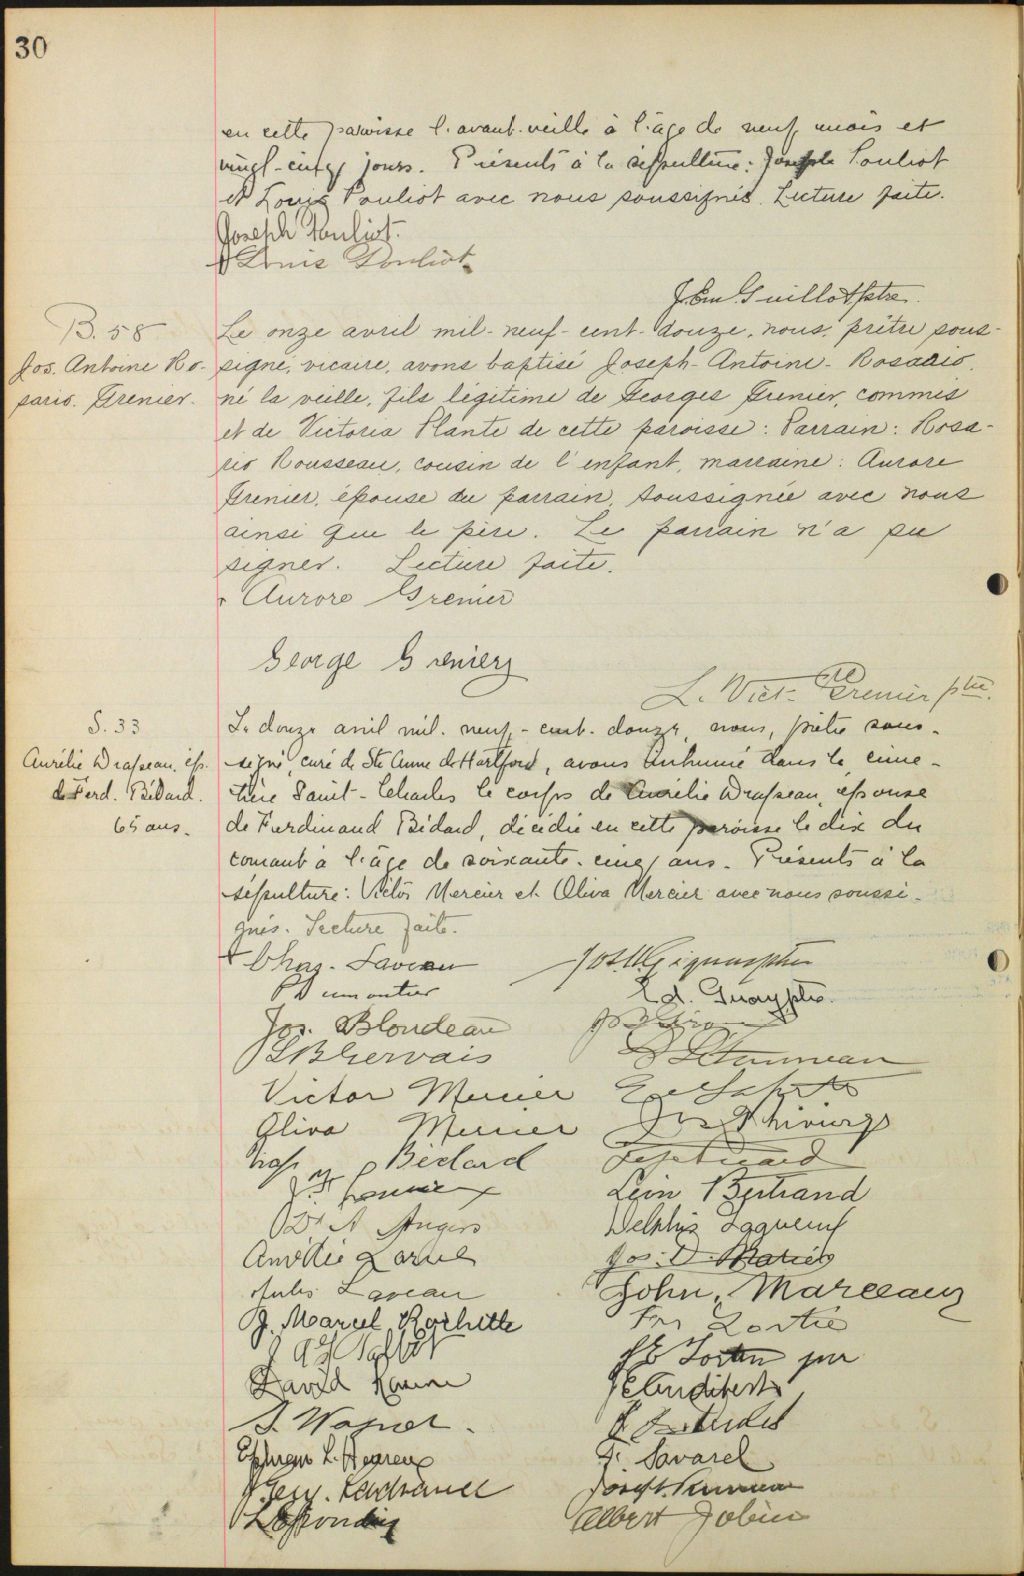 30
en cette paroisse l'avant-veille à l'âge de neuf mois et
vingt-cinq jours. Présents à la sépulture: Joseph Pouliot
et Louis Pouliot avec nous soussignés. Lecture faite.
Joseph Pouliot.
Louis Pouliot
J. Em. Guillot ptre.
B. 58
Jos. Antoine Ro-
sario. Grenier.
Le onze avril mil-neuf-cent-douze, nous, prêtre sous-
signé, vicaire, avons baptisé Joseph-Antoine-Rosario,
né la veille, fils légitime de Georges Grenier, commis
et de Victoria Plante de cette paroisse: Parrain: Rosa-
rio Rousseau, cousin de l'enfant, marraine: Aurore
Grenier, épouse du parrain, soussignée avec nous
ainsi que le père. Le parrain n'a su
signer. Lecture faite.
Aurore Grenier
George Grenier
L. Vict. Grenier ptre.
S. 33
Aurélie Drapeau, ép.
de Ferd. Bédard.
65 ans.
Le douze avril mil-neuf-cent-douze, nous, prêtre sous-
signé, curé de Ste Anne de Hartford, avons inhumé dans le cime-
tière Saint-Charles le corps de Aurélie Drapeau, épouse
de Ferdinand Bédard, décédée en cette paroisse le dix du
courant à l'âge de soixante-cinq ans. Présents à la
sépulture: Victor Mercier et Oliva Mercier avec nous soussi-
gnés. Lecture faite.
Chas. Saveau
P. Dumontier
Ed. Guay ptre.
Jos. Blondeau
Gervais
Victor Mercier
Oliva Mercier
Bédard
Léon Bertrand
Dr A Angers
Delphis Lagueux
Amédée Larue
Jos. D.
Jules
John. Marceau
J. Marcel Rochette
Lortie
Talbot
David
S. Wagner.
Ephrem L. Heureux
F. Savard
Joseph
Albert Jobin